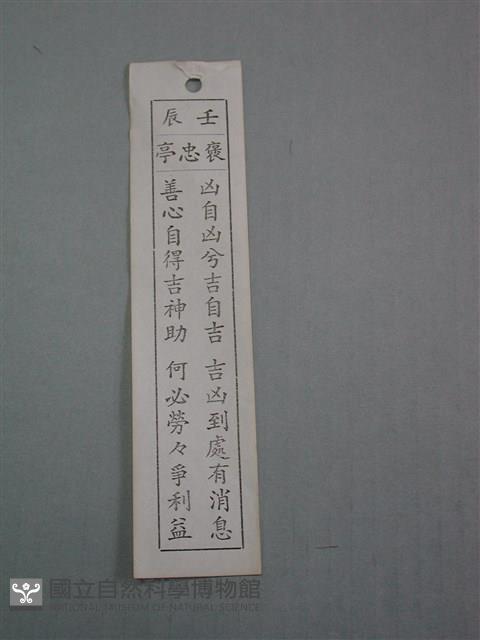 壬辰
褒忠亭
凶自凶兮吉自吉 吉凶到處有消息
善心自得吉神助 何必勞々爭利益
國立自然科學博物館
NATIONAL MUSEUM OF NATURAL SCIENCE